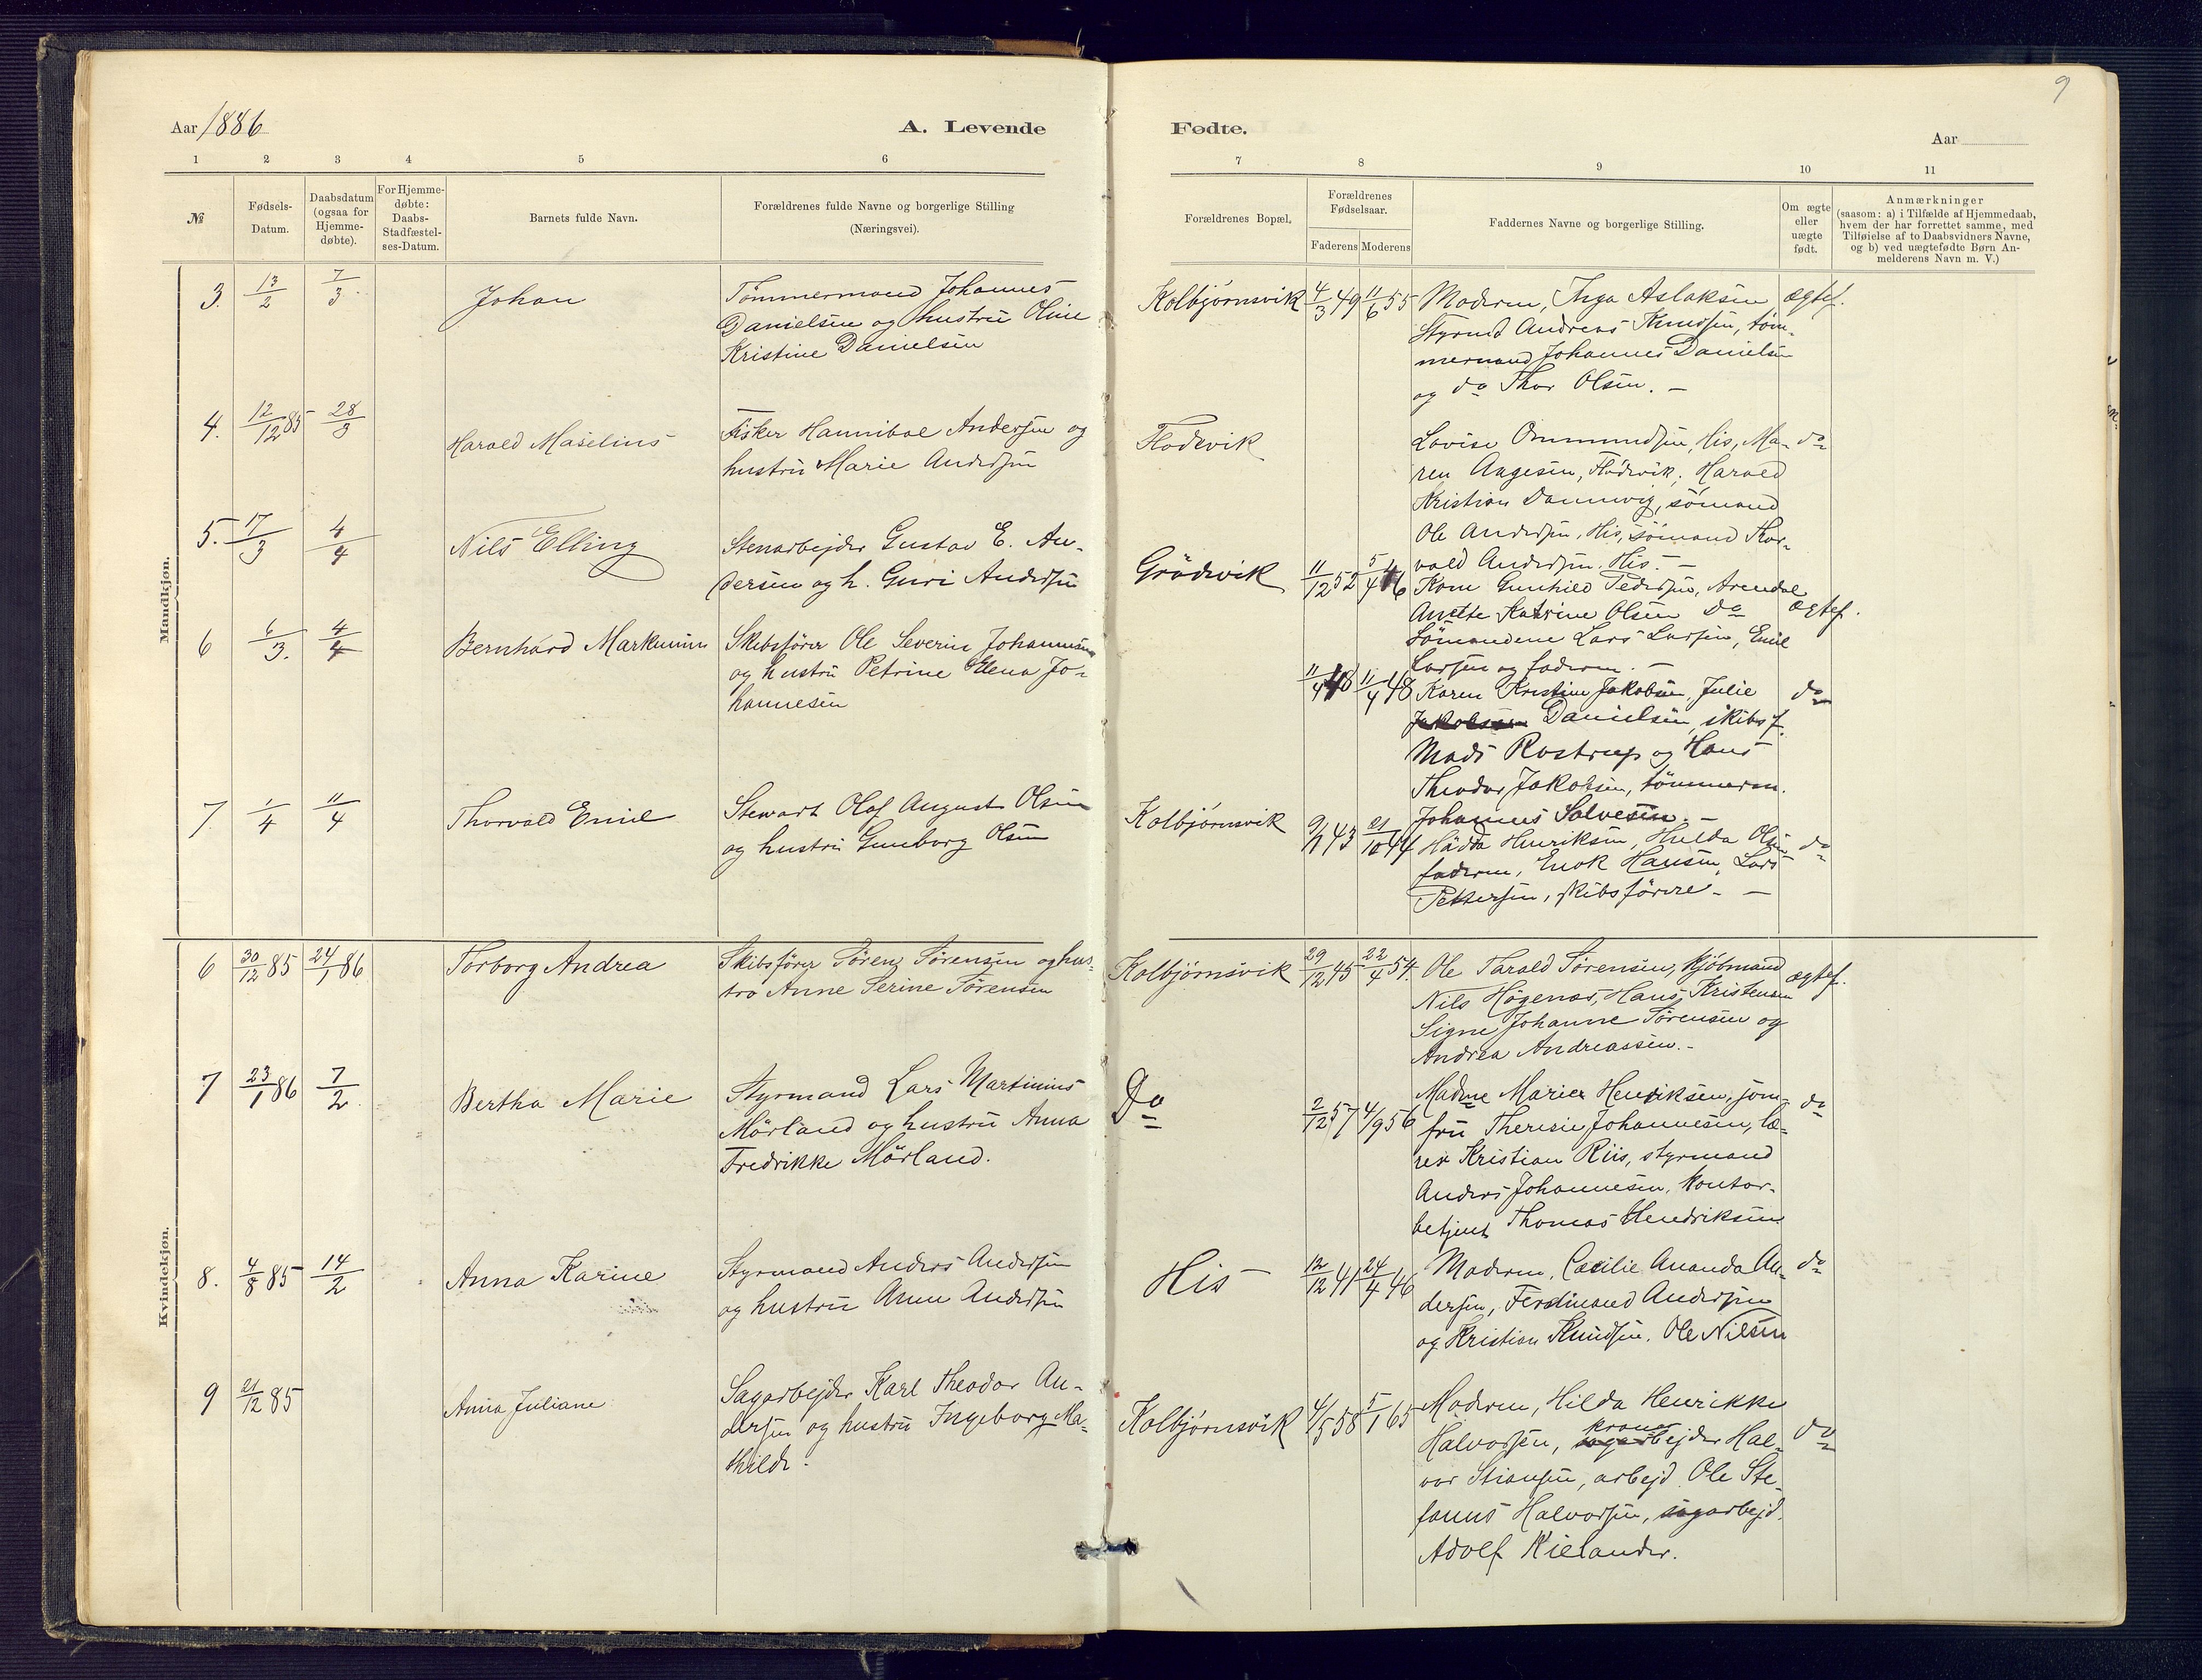 9
Aar 1886
A. Levende
Fødte.
Aar
1 2 3 4 5 6 7 8 9 10 11
№
Fødsels-
Datum.
Daabsdatum
(ogsaa for
Hjemme-
døbte).
For Hjemme-
døbte:
Daabs-
Stadfæstel-
ses-Datum.
Barnets fulde Navn.
Forældrenes fulde Navne og borgerlige Stilling
(Næringsvei).
Forældrenes Bopæl.
Forældrenes
Fødselsaar.
Faderens Moderens
Faddernes Navne og borgerlige Stilling.
Om ægte
eller
uægte
født.
Anmærkninger
(saasom: a) i Tilfælde af Hjemmedaab,
hvem der har forrettet samme, med
Tilføielse af to Daabsvidners Navne,
og b) ved uægtefødte Børn An-
melderens Navn m. V.)
Mandkjøn.
3. 13/2 7/3. Johan
Tömmermand Johannes
Danielsen og hustru Oline
Kristine Danielsen
Kolbjörnsvik 4/3 49 11/6 55
Moderen, Inga Aslaksen
Styrmd Andreas Knudsen, töm-
mermand Johannes Danielsen
og do Thor Olsen. —
ægtef.
4. 12/12 85 28/3 Harald Maselius
Fisker Hannibal Andersen og
hustru Marie Andersen
Flödevik
Lovise Ommundsen, His, Ma-
ren Aagesen, Flödevik, Harald
Kristian Dannevig, sömand
Ole Andersen, His, sömand Thor-
vald Andersen, His. —
do
5. 17/3 4/4 Nils Elling
Stenarbejder Gustav E. An-
dersen og h. Guri Andersen
Grödevik 11/12 52 5/4 46
Kone Gunhild Pedersen, Arendal
Anette Katrine Olsen do
Sömændene Lars Larsen, Emil
Larsen og faderen. —
ægtef.
6 6/3. 4/4 Bernhard Markunius
Skibsförer Ole Severin Johannesen
og hustru Petrine Elena Jo-
hannesen
11/4 48 11/4 48
Karen Kristine Jakobsen, Julie
Jakobsen Danielsen, skibsf.
Mads Rostrup og Hans
Theodor Jakobsen, tömmerm.
Johannes Salvesen. —
do
7. 1/4 11/4 Thorvald Emil
Stewart Olaf August Olsen
og hustru Gunborg Olsen
Kolbjörnsvik 9/1 43 21/10 44
Hädda Henriksen, Hulda Olsen
faderen, Enok Hansen, Lars
Pettersen, skibsförere. —
do
Kvindekjøn.
6 30/12 85 24/1 86 Torborg Andrea
Skibsförer Sören Sörensen og hus-
tro Anne Serine Sörensen
Kolbjörnsvik 29/12 45 22/4 54.
Ole Tarald Sörensen, kjöbmand
Nils Högenes, Hans Kristensen
Signe Johanne Sörensen og
Andrea Andreassen. -
ægtef.
7 23/1 86 7/2 Bertha Marie
Styrmand Lars Martinius
Mörland og hustru Anna
Fredrikke Mörland.
Do 2/12 57 4/9 56
Madme Marie Henriksen, jom-
fru Therese Johannesen, læ-
rer Kristian Riis, styrmand
Anders Johannesen, kontor-
betjent Thomas Hendriksen
do
8. 4/8 85 14/2 Anna Karine
Styrmand Anders Andersen
og hustru Anne Andersen
His 12/12 41 24/4 46
Moderen, Cæcilie Amanda An-
dersen, Ferdinand Andersen
og Kristian Knudsen. Ole Nilsen
do
9 21/12 85 Anna Juliane
Sagarbejder Karl Theodor An-
dersen og hustru Ingeborg Ma-
thilde.
Kolbjörnsvik 4/5 58 5/1 65
Moderen, Hilda Henrikke
Halvorsen, bejder Hal-
vor Stiansen, arbejd. Ole Ste-
fanus Halvorsen, sagarbejd.
Adolf Kielander.
do